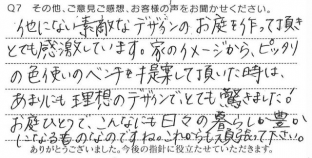 Q7 その他、ご意見ご感想、お客様の声をお聞かせください。
他にない素敵なデザインのお庭を作って頂き
とても感激しています。家のイメージから、ピッタリ
の色使いのベンチを提案して頂いた時は、
あまりにも理想のデザインで、とても驚きました!
お庭ひとつで、こんなにも日々の暮らしが豊か
になるものなのですね。これからも頑張って下さい。
ありがとうございました。今後の指針に役立たせていただきます。